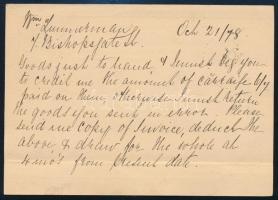 Wm Zimmerman Oct 21/78
4/ Bishopsgate St.
Goods just to hand & I must beg you
to credit me the amount of cartage 6/4
paid on them, otherwise I must return
the goods you sent in error. Please
send me copy of Invoice, deduct the
above, & draw for the whole at
4 mos from present date.